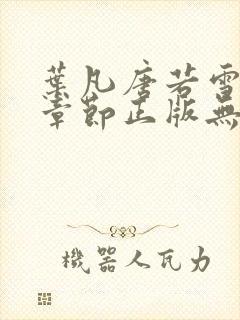 葉凡唐若雪
章節正版無
機器人瓦力